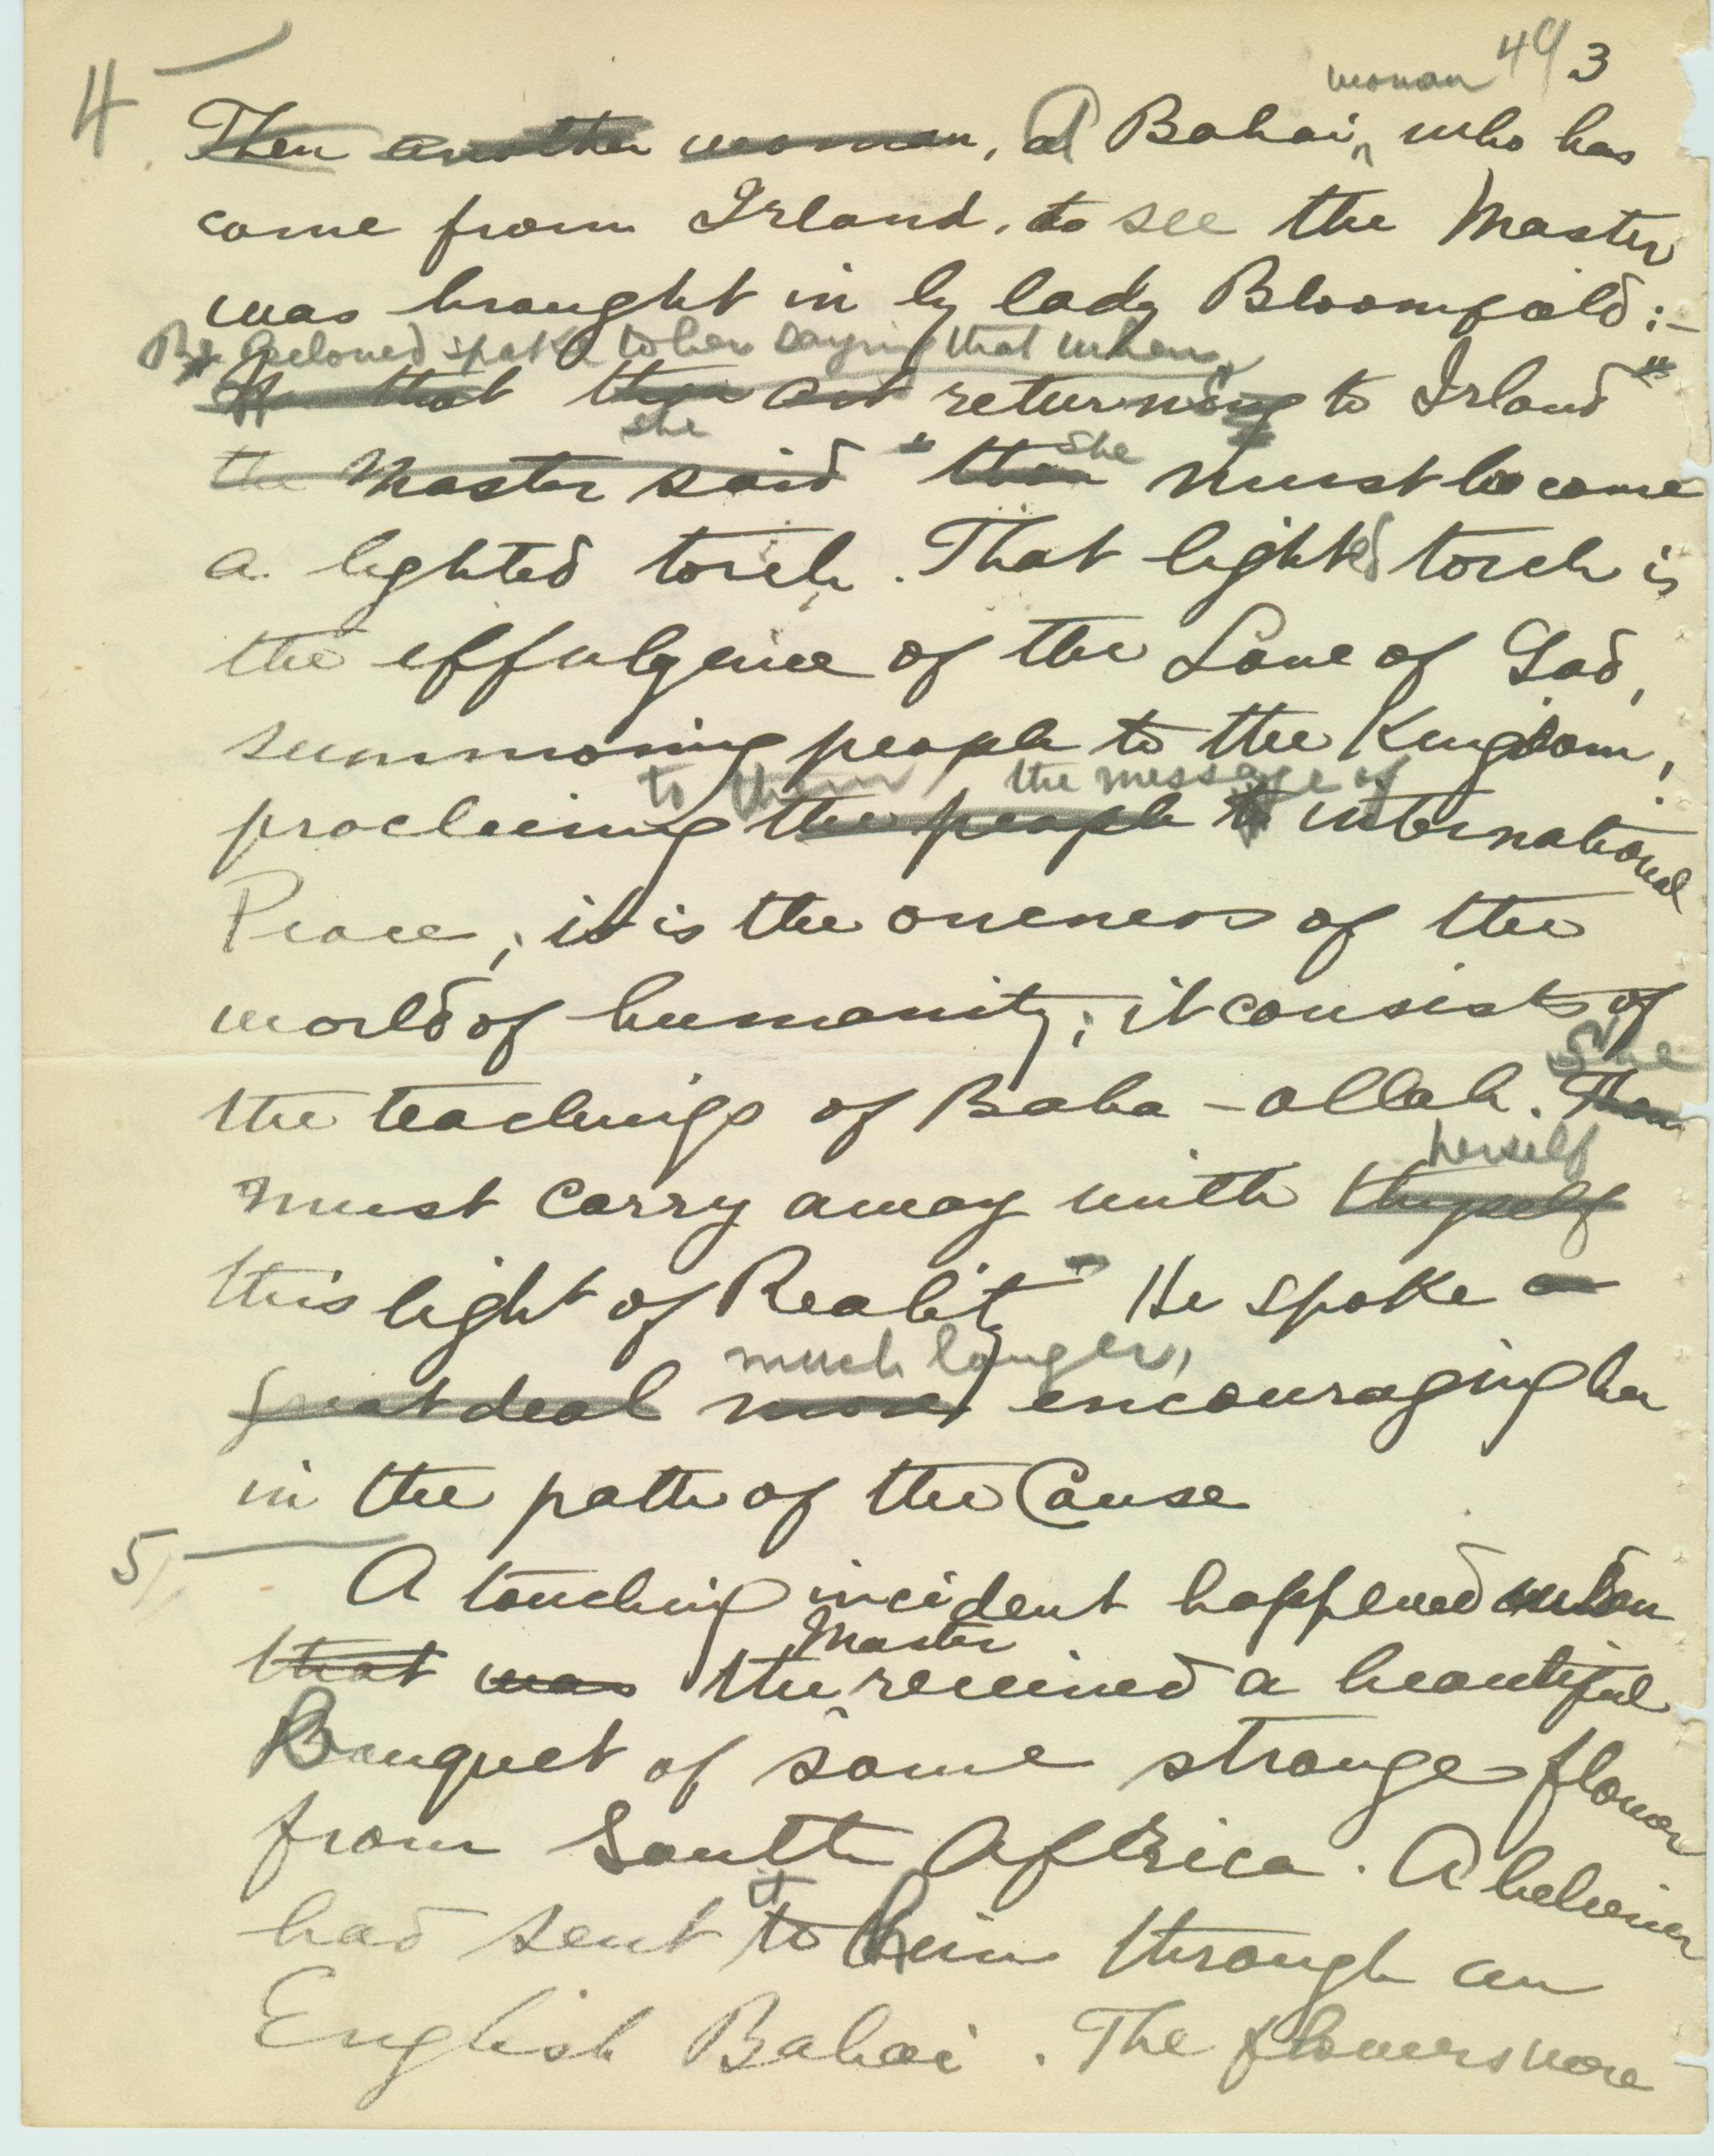 woman 49 3
4 Then another woman, A Bahai, who has
come from Irland, to see the Master
was brought in by lady Bloomfield :-
Beloved spoke to her saying that when
that thou art returning to Irland
she she
the Master said " thou must become
a lighted torch. That lighted torch is
the effulgence of the Love of God,
summoning people to the Kingdom,
to them the message of
procleiming the people to international
Peace; it is the oneness of the
world of humanity; it consists of
She
the teachings of Baha-ollah. Thou
herself
must carry away with thyself
this light of Reality" He spoke a
much longer,
great deal more, encouraging her
in the path of the Cause
5 A touching incident happened when
Master
that was the received a beautiful
Bouquet of some strange flower
from South Africa. A believer
it
had sent to Him through an
English Bahai. The flowers were